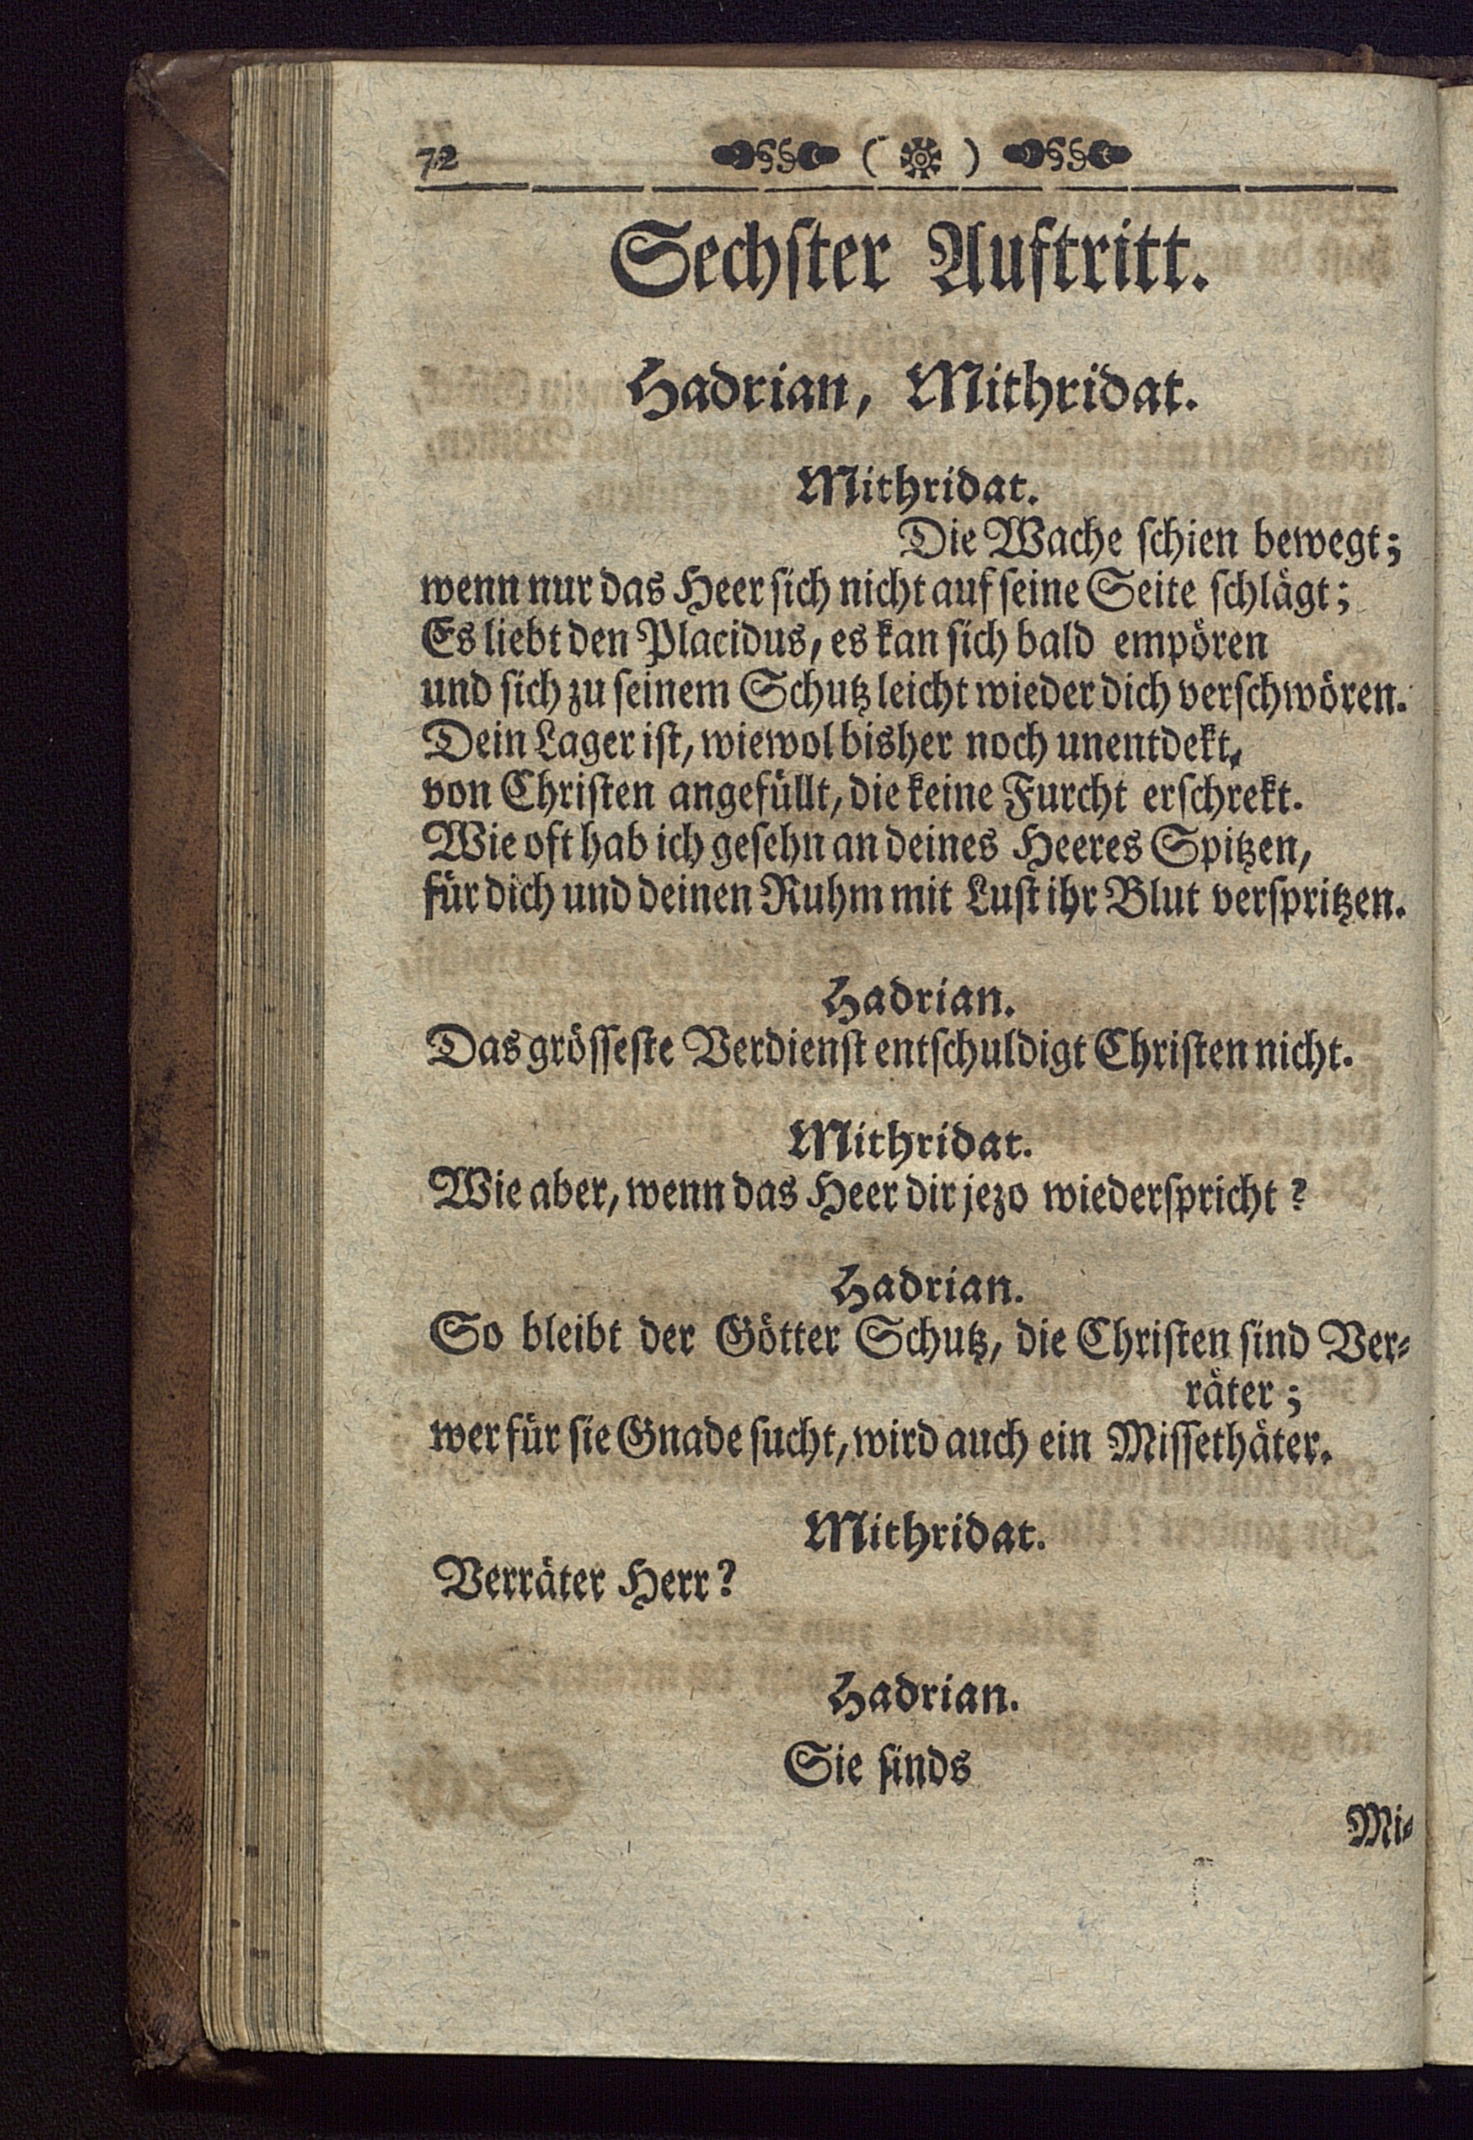 72
Sechster Auftritt.
Hadrian, Mithridat.
Mithridat.
Die Wache schien bewegt;
wenn nur das Heer sich nicht auf seine Seite schlägt;
Es liebt den Placidus, es kan sich bald empören
und sich zu seinem Schutz leicht wieder dich verschwören.
Dein Lager ist, wiewol bisher noch unentdekt,
von Christen angefüllt, die keine Furcht erschrekt.
Wie oft hab ich gesehn an deines Heeres Spitzen,
für dich und deinen Ruhm mit Lust ihr Blut verspritzen.
Hadrian.
Das grösseste Verdienst entschuldigt Christen nicht.
Mithridat.
Wie aber, wenn das Heer dir jezo wiederspricht?
Hadrian.
So bleibt der Götter Schutz, die Christen sind Ver-
räter;
wer für sie Gnade sucht, wird auch ein Missethäter.
Mithridat.
Verräter Herr?
Hadrian.
Sie sinds
Mi-